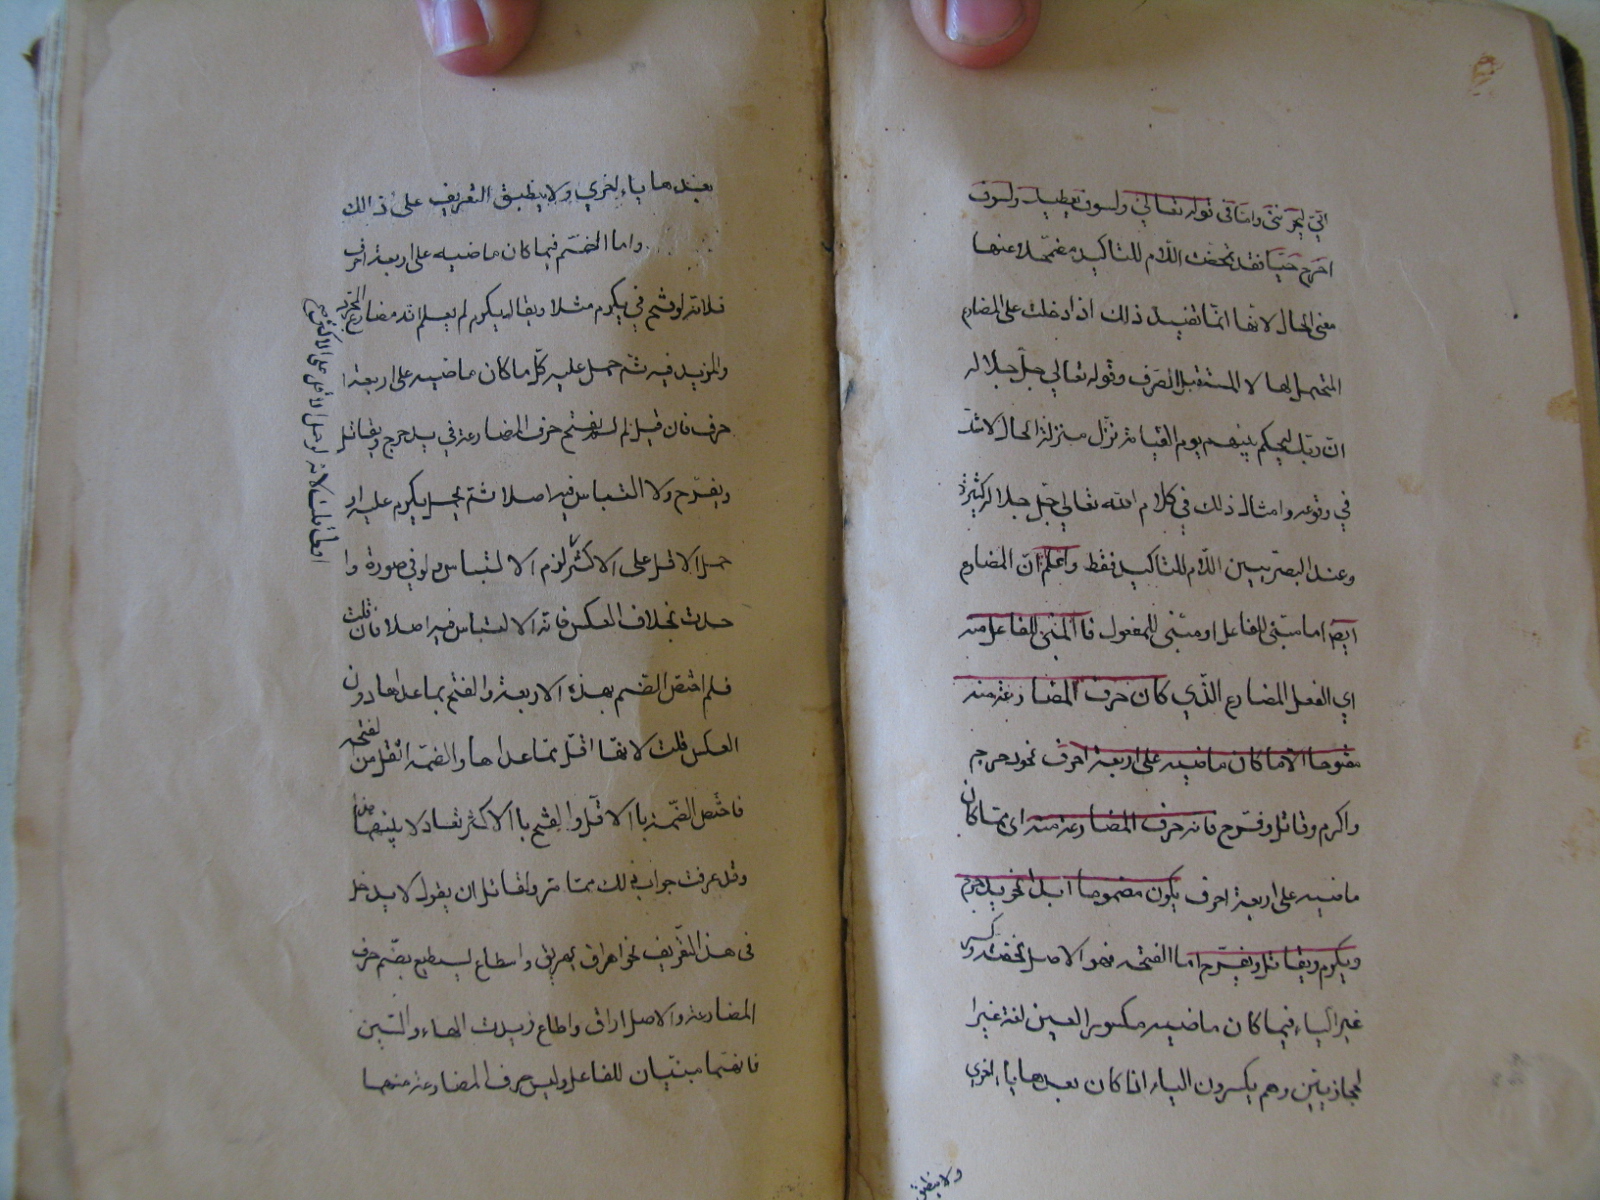 اني ليحزنني واما في قوله تعالى ولسوف يعطيك ولسوف
اخرج حيا فقد تمحضت اللام للتاكيد مضمحلا عنها
معنى الحال لانها انما تفيد ذلك اذا دخلت على المضارع
المحتمل لها لا المستقبل الصرف وقوله تعالى جل جلاله
ان ربك ليحكم بينهم يوم القيامة نزل منزلة الحال لا شك
في وقوعه وامثال ذلك في كلام الله تعالى جل جلاله كثيرة
وعند البصريين اللام للتاكيد فقط واعلم ان المضارع
ايض اما مبني للفاعل او مبني للمفعول فا المبني للفاعل منه
اي الفعل المضارع الذي كان حرف المضارعة منه
مفتوحا الا ما كان ماضيه على اربعة احرف نحو دحرج
واكرم وقاتل وفرح فانه حرف المضارعة منه اي مما كان
ماضيه على اربعة احرف يكون مضموما ابدا نحو يدحرج
ويكرم ويقاتل ويفرح اما الفتحة فهو الاصل لخفته وكسر
غير الياء فيما كان ماضيه مكسور العين لغة غير ا
لحجازيين وهم يكسرون الياء اذا كان بعدها ياء اخرى
ولا ينطبق
بعدها ياء اخرى ولا ينطبق التعريف على ذالك
واما الضم فيما كان ماضيه على اربعة احرف
فلانه لو فتح في يكرم مثلا ويقال يكرم لم يعلم انه مضارع المجرد
والمزيد فيه ثم حمل عليه كل ما كان ماضيه على اربعة ا
حرف فان قيل لم لم يفتح حرف المضارعة في يدحرج ويقاتل
ويفرح ولا التباس فيه اصلا ثم يحمل يكرم عليه او
حمل الاقل على الاكثر لزم الالتباس ولو في صورة وا
حدة بخلاف العكس فانه لا التباس فيه اصلا فان قلت
فلم اختص الضم بهذه الاربعة والفتح بما عداها دون
العكس قلت لانها اقل مما عداها والضمة اثقل من الفتحة
فاختص الضمة با الاقل والفتح با الاكثر تعادلا بينهما
وقد عرفت جواب ذلك مما مر ولقائل ان يقول لا يدخل
في هذا التعريف نحو اهراق يهريق واسطاع يسطيع بضم حرف
المضارعة والاصل اراق واطاع زيدت الهاء والسين
فانهما مبنيان للفاعل وليس حرف المضارعة منهما